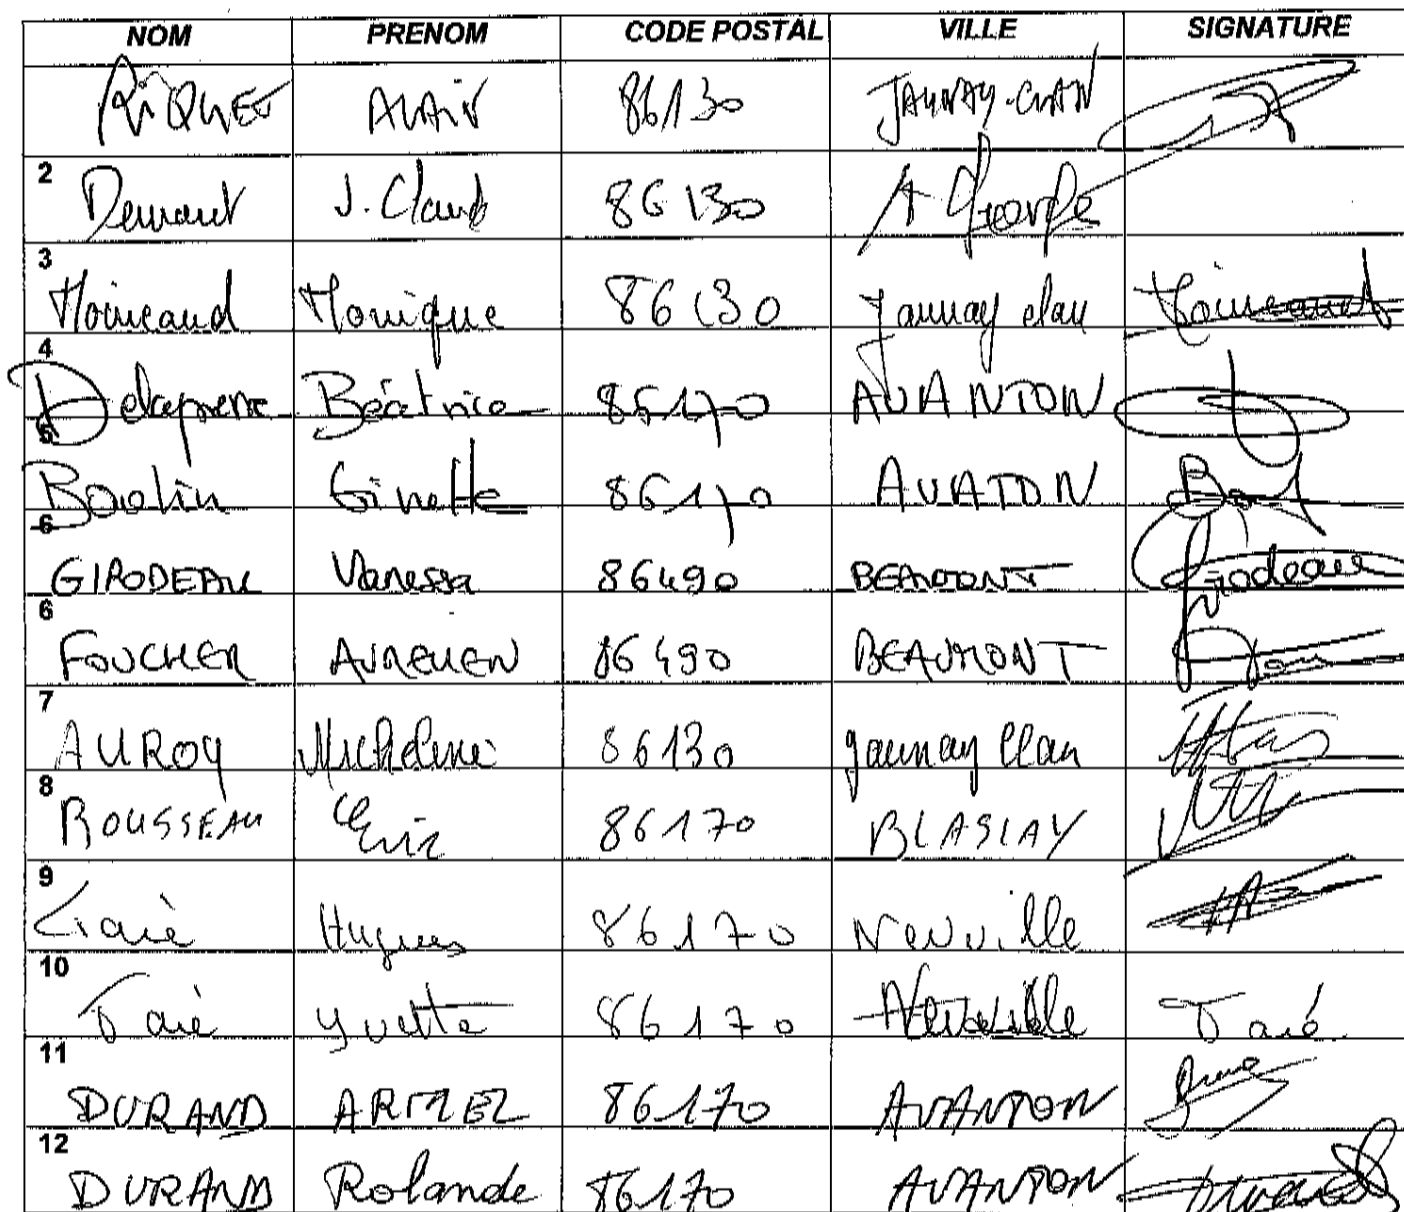 NOM PRENOM CODE POSTAL VILLE SIGNATURE
RIQUET ALAIN 86130 JAUNAY-CLAN
2 J. Claude 86130 St George
3 Moineaud Monique 86130 Jaunay clan Moineaud
4 Béatrice 86170 AVANTON
5 Boutin Ginette 86170 AVATON
6 GIRODEAU Vanessa 86490 BEAUMONT Girodeau
6 FOUCHER AURELIEN 86490 BEAUMONT
7 AUROY Micheline 86130 Jaunay Clan
8 ROUSSEAU Eric 86170 BLASLAY
9 Hugues 86170 Neuville
10 Taré Yvette 86170 Neuville Taré
11 DURAND ARMEL 86170 AVANTON
12 DURAND Rolande 86170 AVANTON Durand